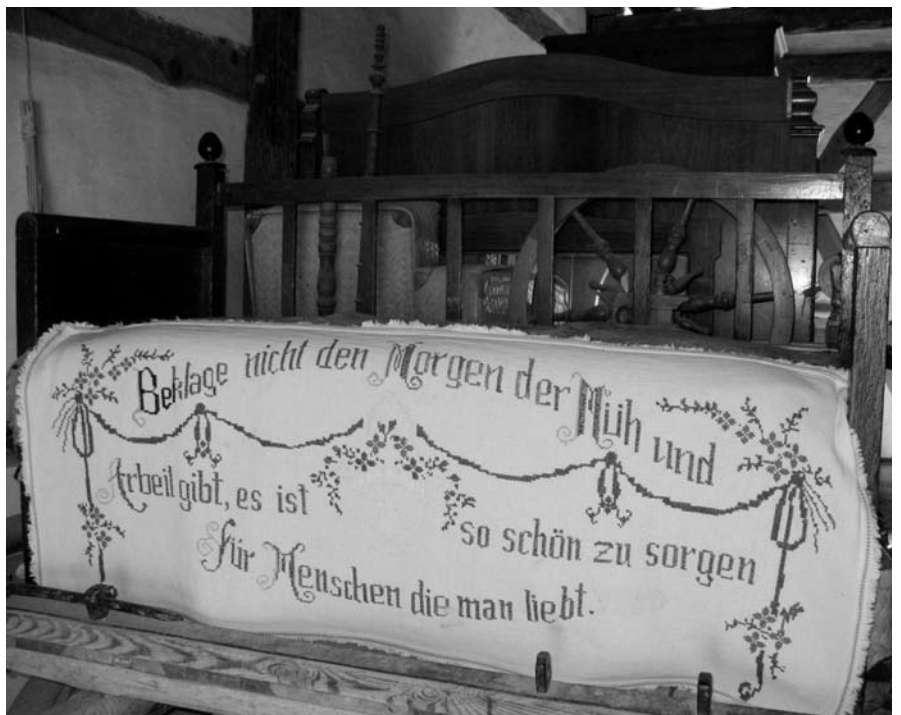 Beklage nicht den Morgen der Müh und
Arbeit gibt, es ist so schön zu sorgen
für Menschen die man liebt.